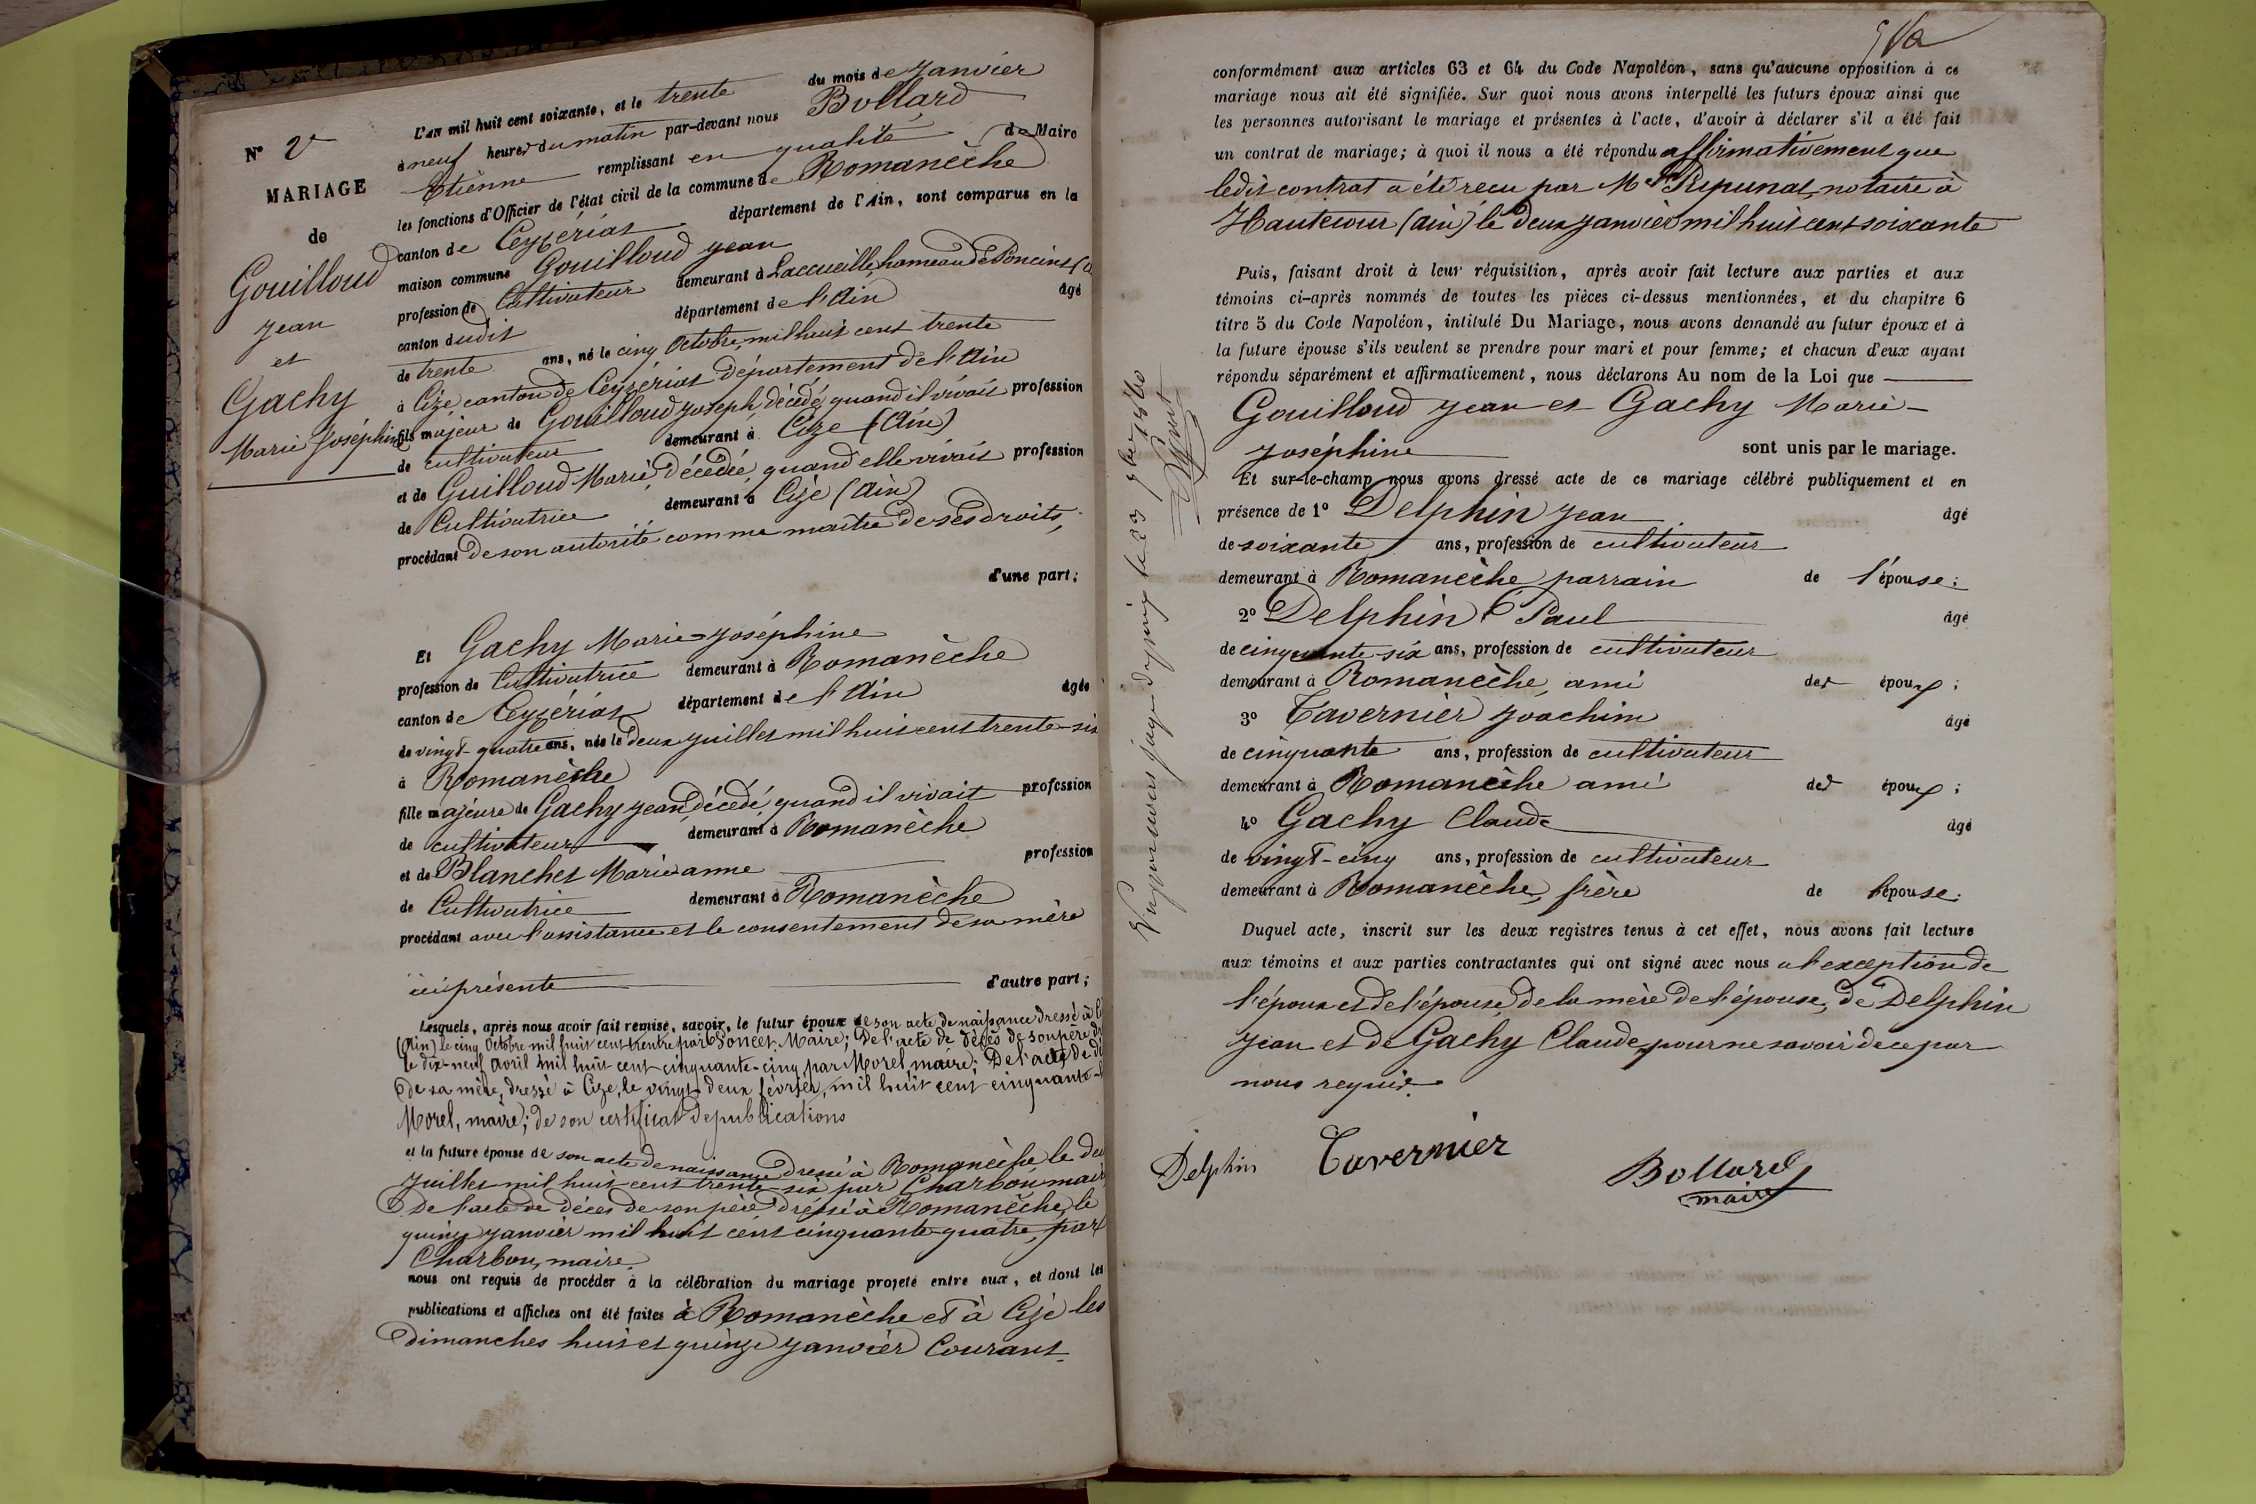 N° 2
MARIAGE
de
Gouilloud
Jean
et
Gachy
Marie Joséphine
L'an mil huit cent soixante, et le trente du mois de Janvier
à neuf heures du matin par-devant nous Bollard
Etienne remplissant en qualité de Maire
les fonctions d'Officier de l'état civil de la commune de Romanèche
canton de Ceyzériat département de l'Ain, sont comparus en la
maison commune Gouilloud Jean
profession de Cultivateur demeurant à Laccueille hameau de Poncins
canton dudit département de l'Ain âgé
de trente ans, né le cinq Octobre, mil huit cent trente
à Cize canton de Ceyzériat département de l'Ain
fils majeur de Gouilloud Joseph, décédé, quand il vivait profession
de cultivateur demeurant à Cize (Ain)
et de Guilloud Marie, décédée, quand elle vivait profession
de Cultivatrice demeurant à Cize (Ain)
procédant de son autorité comme maître de ses droits,
d'une part;
Et Gachy Marie-Joséphine
profession de Cultivatrice demeurant à Romanèche
canton de Ceyzériat département de l'Ain âgée
de vingt-quatre ans, née le deux Juillet mil huit cent trente-six
à Romanèche
fille majeure de Gachy Jean, décédé, quand il vivait profession
de cultivateur demeurant à Romanèche
et de Blanchet Marie anne profession
de Cultivatrice demeurant à Romanèche
procédant avec l'assistance et le consentement de sa mère
ici présente d'autre part;
Lesquels, après nous avoir fait remise, savoir, le futur époux de son acte de naissance dressé à
(Ain) le cinq Octobre mil huit cent trente par Poncet, Maire; De l'acte de décès de son père
le dix-neuf avril mil huit cent cinquante-cinq par Morel, maire; De l'acte de
de sa mère, dressé à Cize, le vingt deux février, mil huit cent cinquante
Morel, maire; de son certificat de publications
et la future épouse de son acte de naissance dressé à Romanèche, le
Juillet mil huit cent trente-six par Charbon, maire
De l'acte de décès de son père dressé à Romanèche, le
quinze Janvier mil huit cent cinquante-quatre, par
Charbon, maire.
nous ont requis de procéder à la célébration du mariage projeté entre eux, et dont les
publications et affiches ont été faites à Romanèche et à Cize les
dimanches huit et quinze Janvier Courant.
conformément aux articles 63 et 64 du Code Napoléon, sans qu'aucune opposition à ce
mariage nous ait été signifiée. Sur quoi nous avons interpellé les futurs époux ainsi que
les personnes autorisant le mariage et présentes à l'acte, d'avoir à déclarer s'il a été fait
un contrat de mariage; à quoi il nous a été répondu affirmativement que
ledit contrat a été reçu par notaire à
Hautecour (ain) le deux Janvier mil huit cent soixante
Puis, faisant droit à leur réquisition, après avoir fait lecture aux parties et aux
témoins ci-après nommés de toutes les pièces ci-dessus mentionnées, et du chapitre 6
titre 5 du Code Napoléon, intitulé Du Mariage, nous avons demandé au futur époux et à
la future épouse s'ils veulent se prendre pour mari et pour femme; et chacun d'eux ayant
répondu séparément et affirmativement, nous déclarons Au nom de la Loi que
Gouilloud Jean et Gachy Marie-
Joséphine sont unis par le mariage.
Et sur-le-champ nous avons dressé acte de ce mariage célébré publiquement et en
présence de 1° Delphin Jean âgé
de soixante ans, profession de cultivateur
demeurant à Romanèche parrain de l'épouse;
2° Delphin Paul âgé
de cinquante-six ans, profession de cultivateur
demeurant à Romanèche, ami des époux;
3° Tavernier Joachim âgé
de cinquante ans, profession de cultivateur
demeurant à Romanèche ami des époux;
4° Gachy Claude âgé
de vingt-cinq ans, profession de cultivateur
demeurant à Romanèche, frère de l'épouse.
Duquel acte, inscrit sur les deux registres tenus à cet effet, nous avons fait lecture
aux témoins et aux parties contractantes qui ont signé avec nous a l'exception de
l'époux et de l'épouse, de la mère de l'épouse, de Delphin
Jean et de Gachy Claude, pour ne savoir de ce par
nous requis.
Delphin Tavernier Bollard
maire